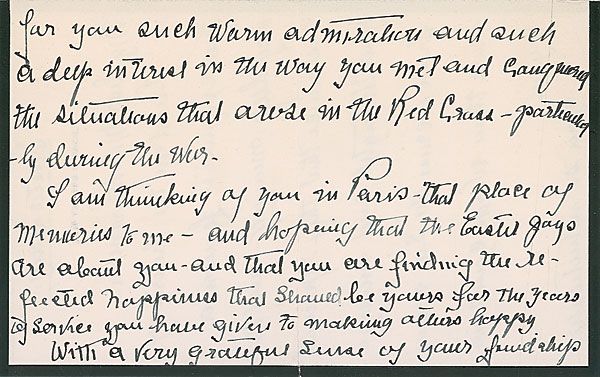 for you such warm admiration and such
a deep interest in the way you met and conquered
the situations that arose in the Red Cross - particular
-ly during the War.
I am thinking of you in Paris - that place of
memories to me - and hopeing that the Easter joys
are about you - and that you are finding the re-
flected happiness that should be yours for the years
of service you have given to making others happy
With a very grateful sense of your friendship